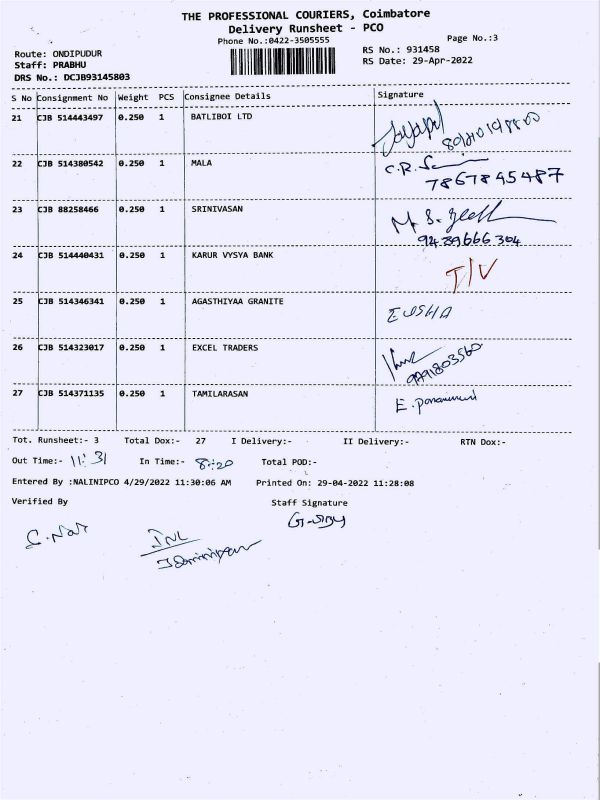 THE PROFESSIONAL COURIERS, Coimbatore
Delivery Runsheet - PCO
Phone No.:0422-3505555
Page No.:3
Route: ONDIPUDUR
RS No.: 931458
Staff: PRABHU
RS Date: 29-Apr-2022
DRS No.: DCJB93145803
S No Consignment No Weight PCS Consignee Details Signature
21 CJB 514443497 0.250 1 BATLIBOI LTD
22 CJB 514380542 0.250 1 MALA C.R.
7867845487
23 CJB 88258466 0.250 1 SRINIVASAN M. S.
9439666304
24 CJB 514440431 0.250 1 KARUR VYSYA BANK T/V
25 CJB 514346341 0.250 1 AGASTHIYAA GRANITE EUSHA
26 CJB 514323017 0.250 1 EXCEL TRADERS
27 CJB 514371135 0.250 1 TAMILARASAN E.
Tot. Runsheet:- 3 Total Dox:- 27 I Delivery:- II Delivery:- RTN Dox:-
Out Time:- 11:31 In Time:- 8:20 Total POD:-
Entered By :NALINIPCO 4/29/2022 11:30:06 AM Printed On: 29-04-2022 11:28:08
Verified By Staff Signature